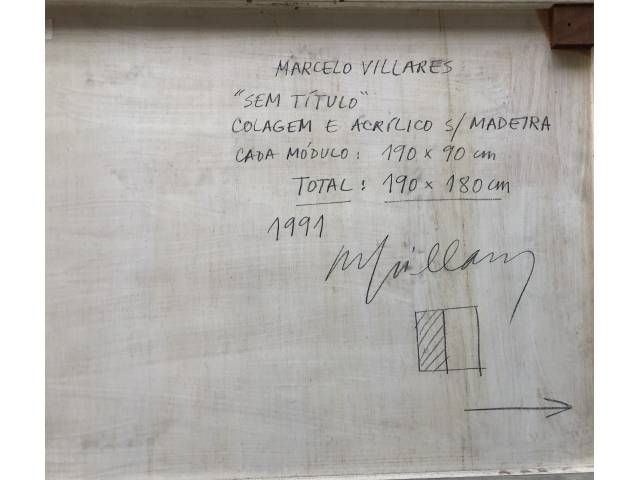 MARCELO VILLARES
"SEM TÍTULO"
COLAGEM E ACRÍLICO S/ MADEIRA
CADA MÓDULO: 190 x 90 cm
TOTAL: 190 x 180 cm
1991
MVillares